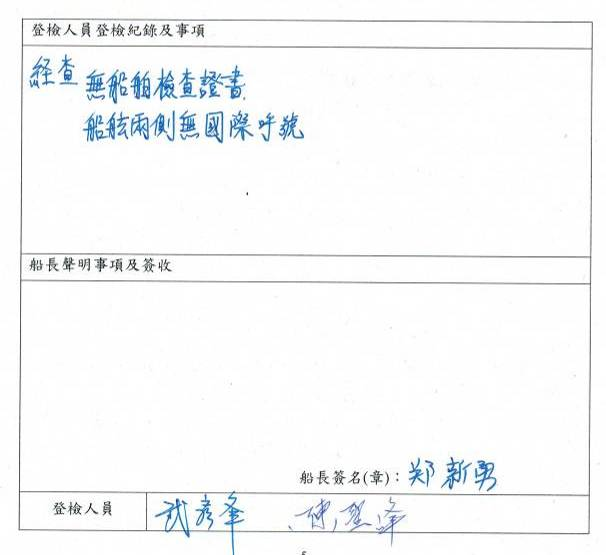 登檢人員登檢紀錄及事項
経查 無船舶檢查證書
船舷兩側無國際呼號
船長聲明事項及簽收
船長簽名(章):郑新勇
登檢人員
5